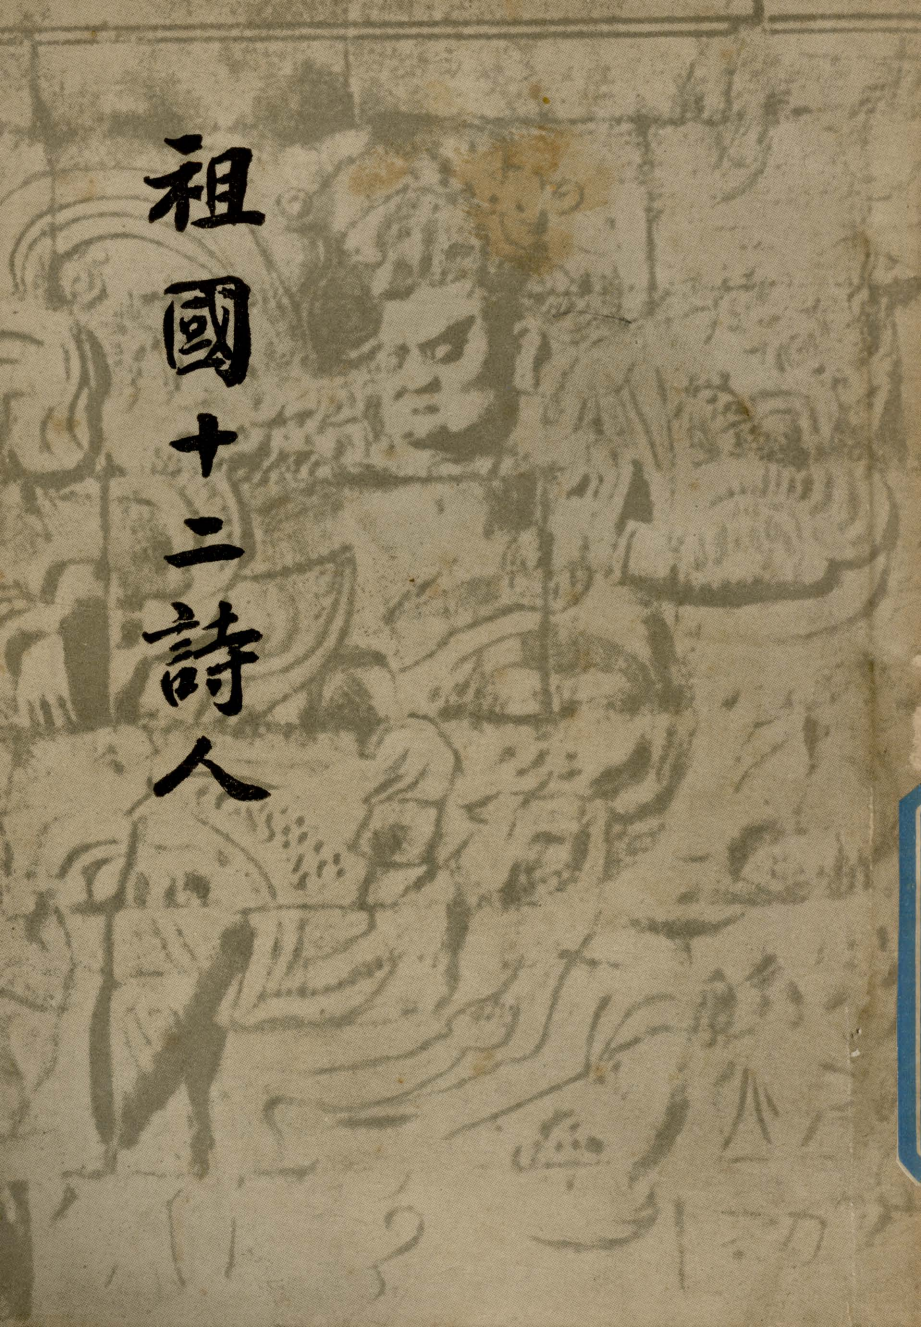 祖國十二詩人